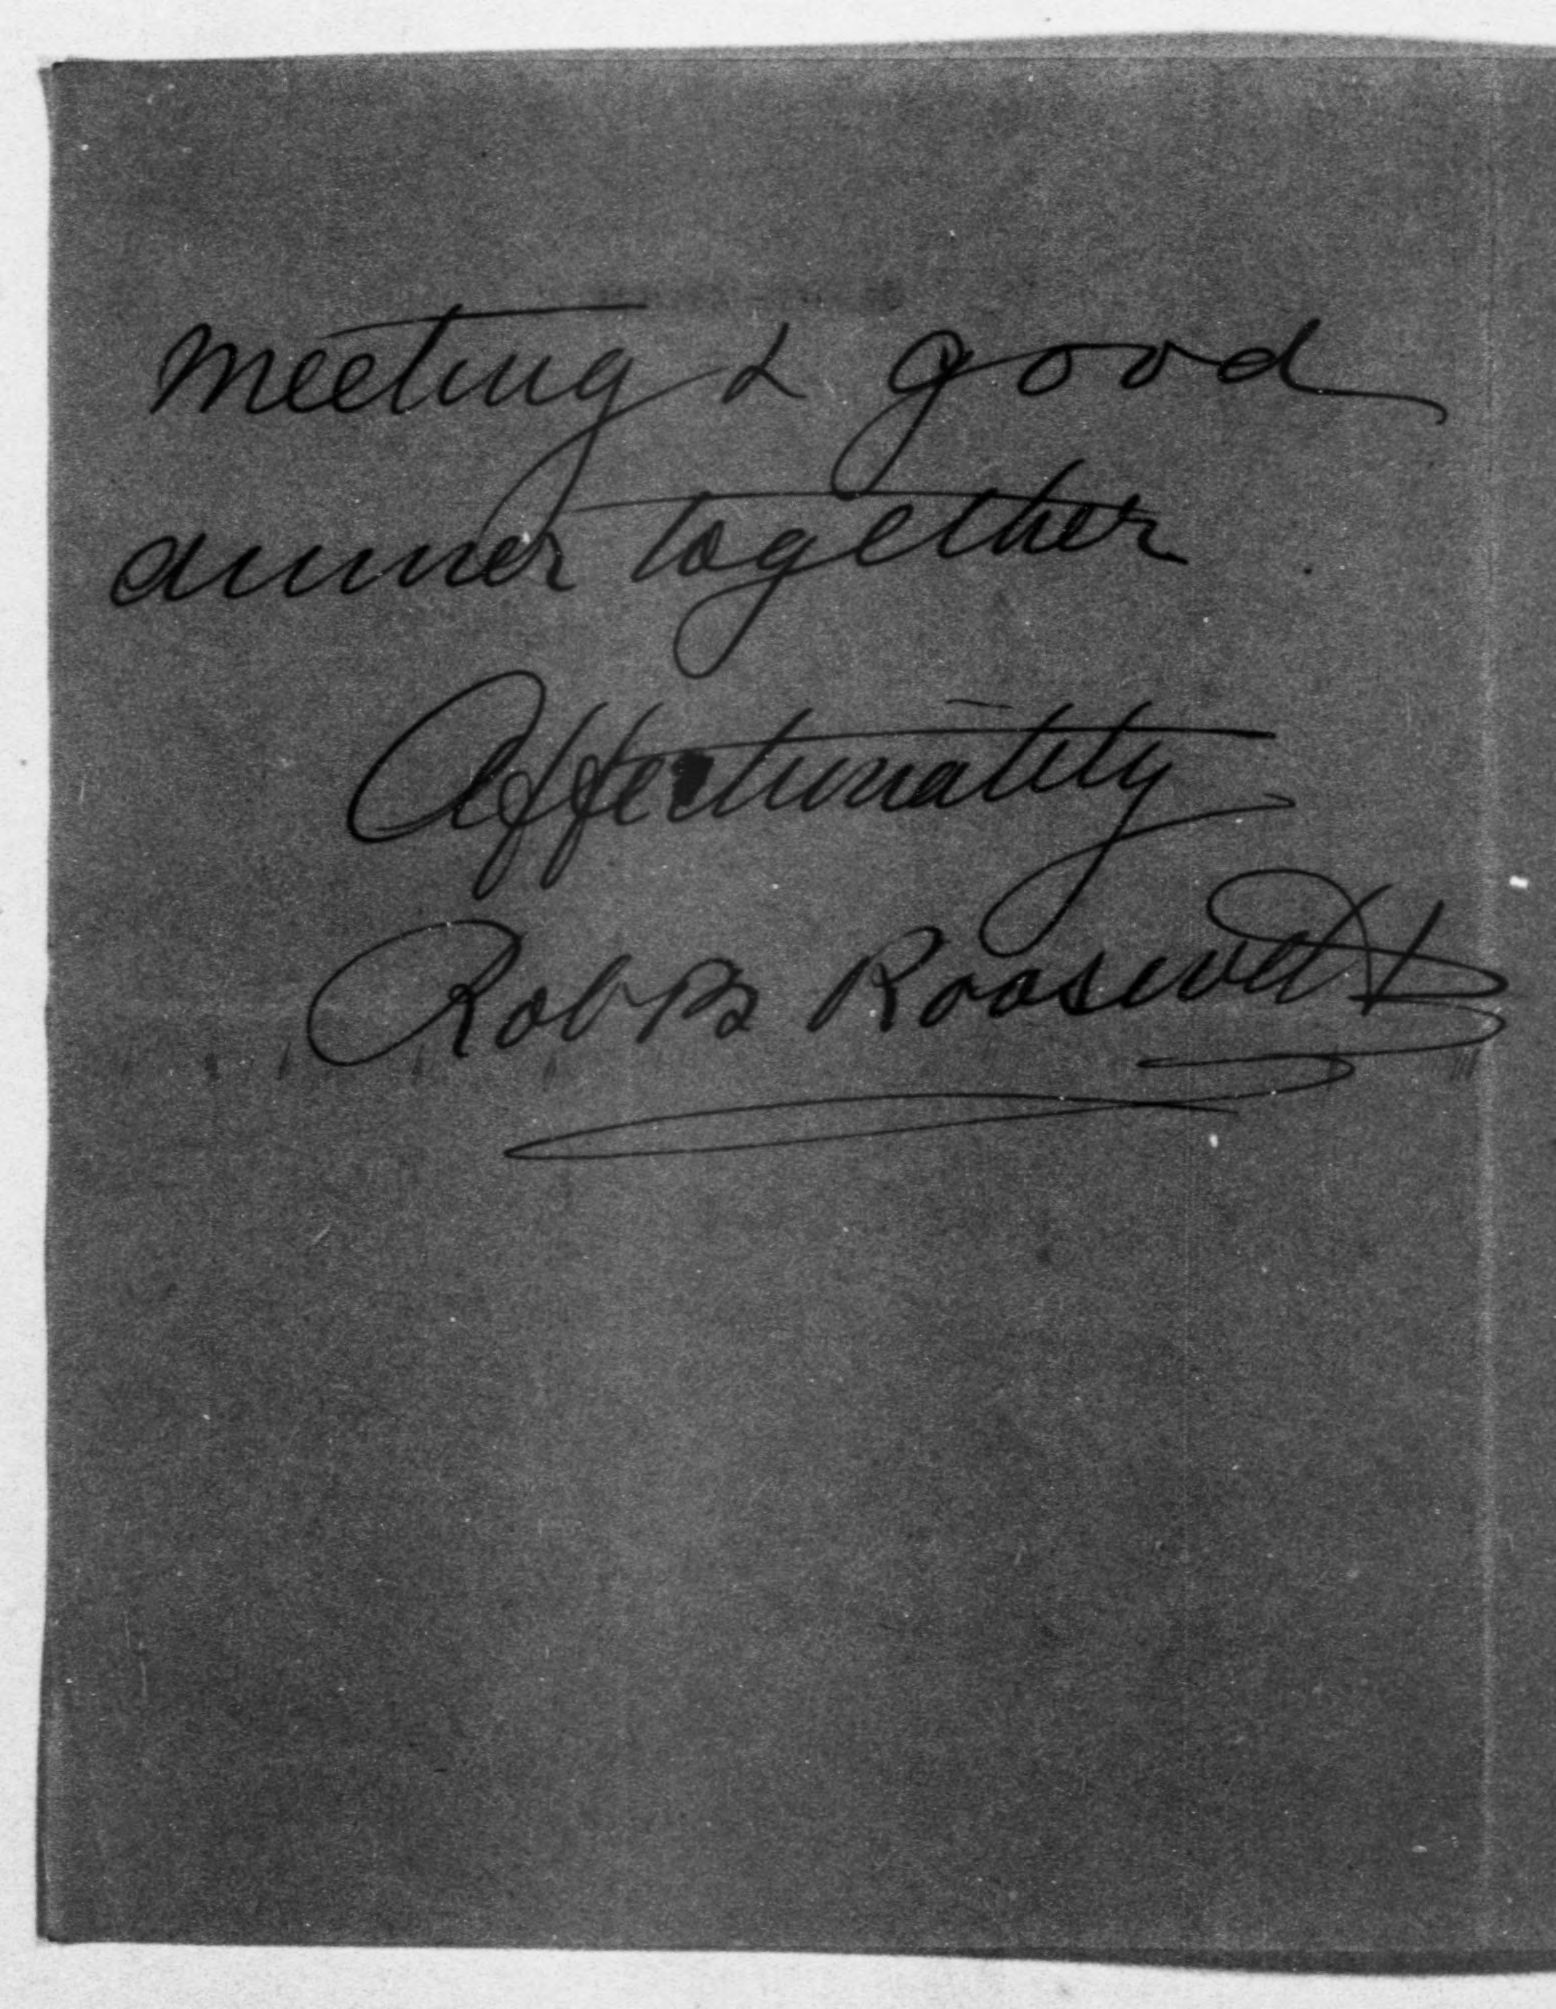 meeting & good
dinner together
Affectionately
Rob B Roosevelt